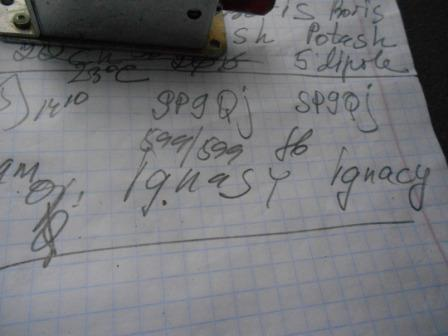 is Boris
sh Potash
23°C 5 dipole
5) 14 10 SP9Qj SP9Qj
599/599 fb
Ignasy Ignacy